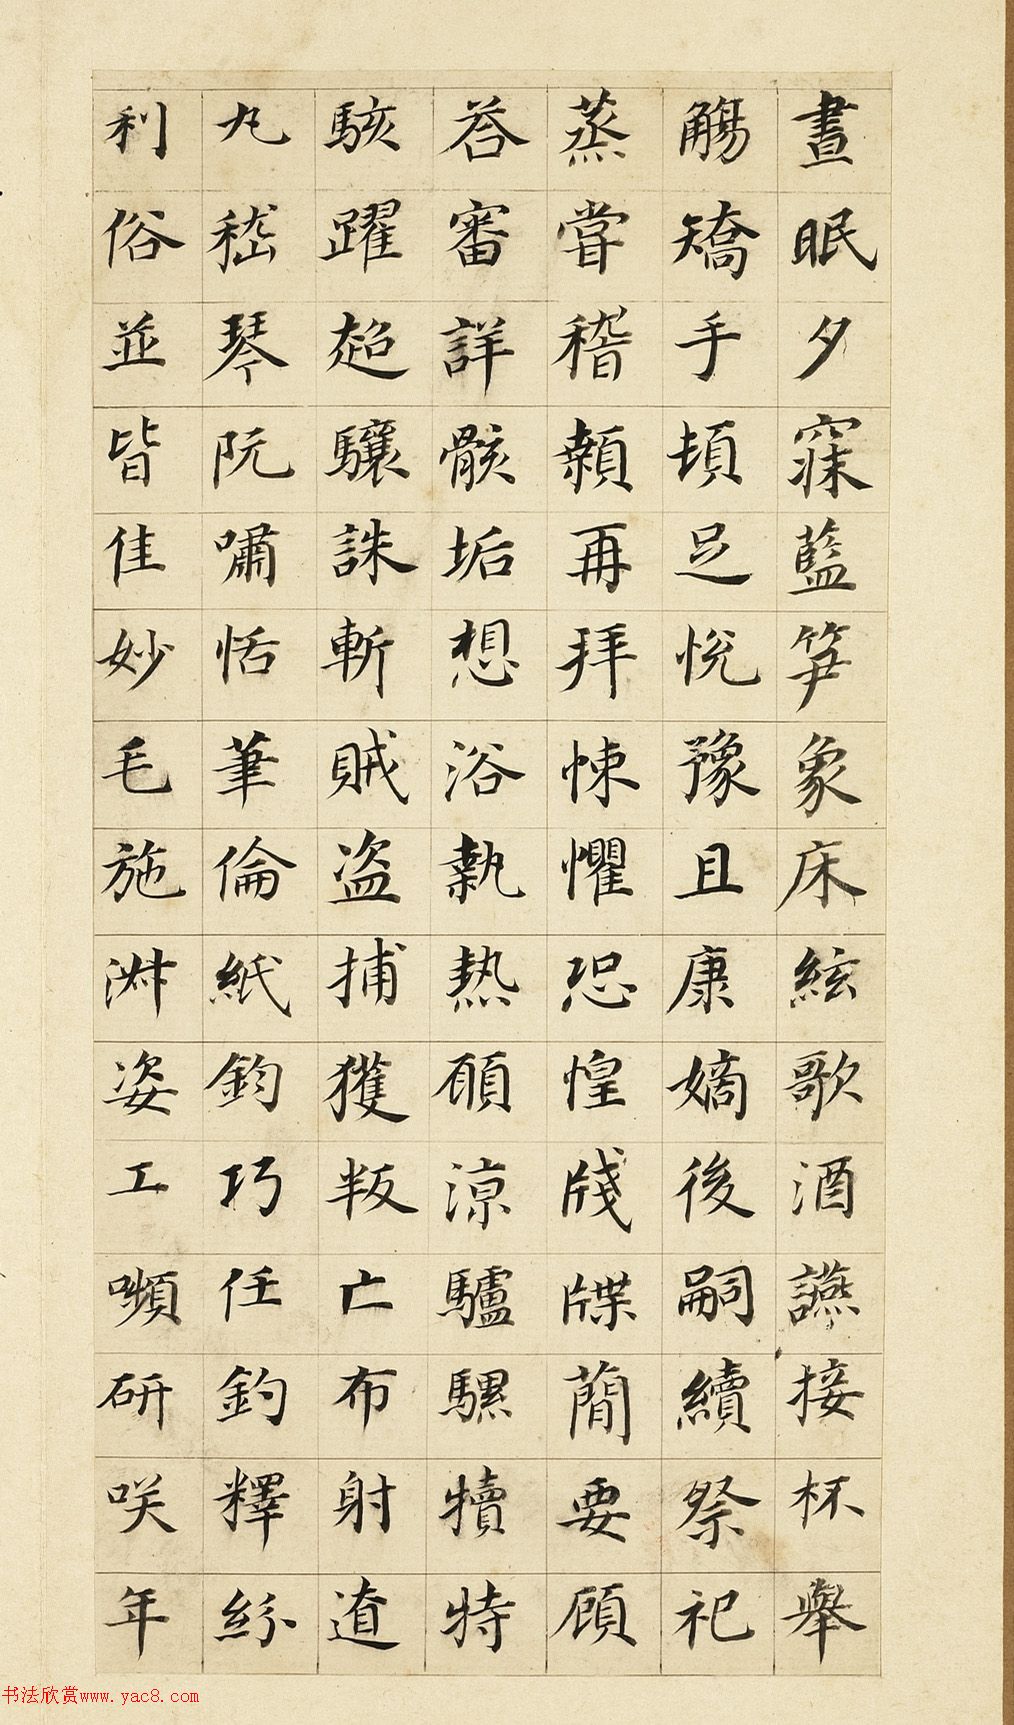 晝眠夕寐藍笋象床絃歌酒讌接杯舉
觴矯手頓足悅豫且康嫡後嗣續祭祀
蒸嘗稽顙再拜悚懼恐惶牋牒簡要顧
荅審詳骸垢想浴執熱願涼驢騾犢特
駭躍超驤誅斬賊盜捕獲叛亡布射遼
丸嵇琴阮嘯恬筆倫紙鈞巧任釣釋紛
利俗並皆佳妙毛施淑姿工嚬研咲年
书法欣赏www.yac8.com